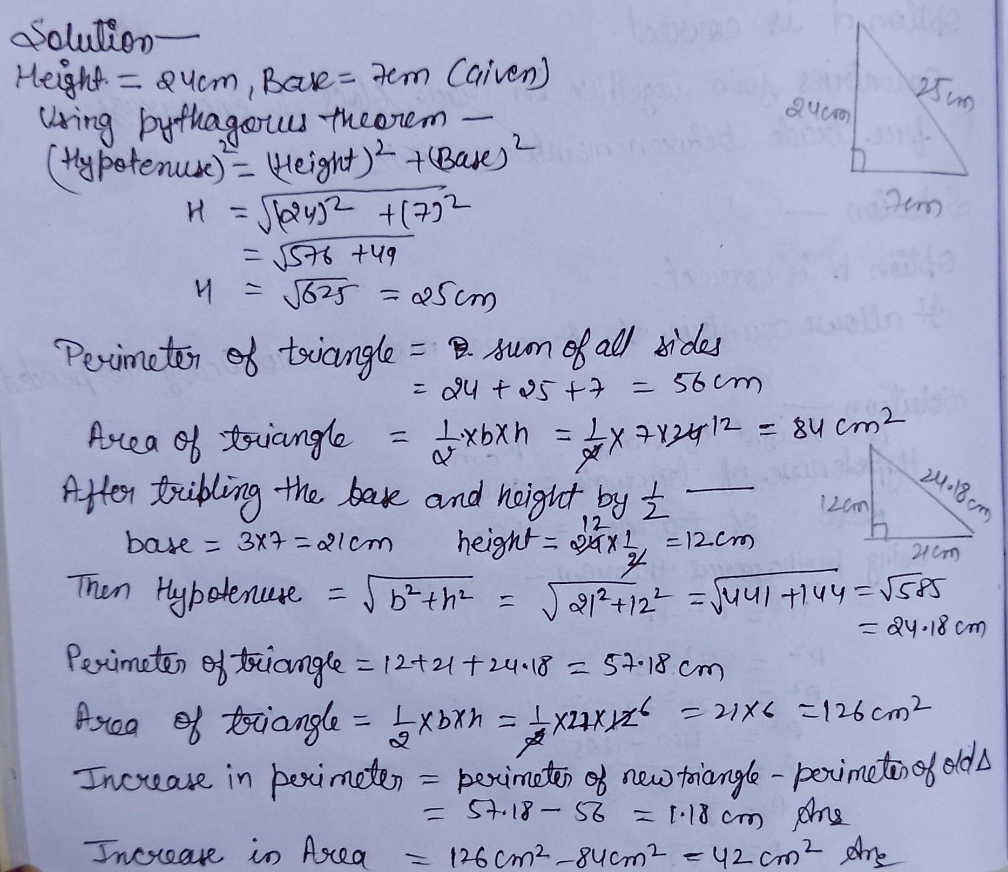 Solution—
Height = 24cm, Base = 7cm (Given)
Using pythagorus theorem —
(Hypotenuse)² = (Height)² + (Base)²
H = √(24)² + (7)²
= √576 + 49
H = √625 = 25cm
24cm
25cm
7cm
Perimeter of triangle = sum of all sides
= 24 + 25 + 7 = 56 cm
Area of triangle = 1/2 × b × h = 1/2 × 7 × 24 12 = 84 cm²
After tribling the base and height by 1/2 —
base = 3×7 = 21cm height = 24 12 × 1/2 = 12cm
12cm
24.18cm
21cm
Then Hypotenuse = √b² + h² = √21² + 12² = √441 + 144 = √585
= 24.18 cm
Perimeter of triangle = 12 + 21 + 24.18 = 57.18 cm
Area of triangle = 1/2 × b × h = 1/2 × 21 × 12 6 = 21 × 6 = 126 cm²
Increase in perimeter = perimeter of new triangle - perimeter of old Δ
= 57.18 - 56 = 1.18 cm Ans
Increase in Area = 126 cm² - 84 cm² = 42 cm² Ans